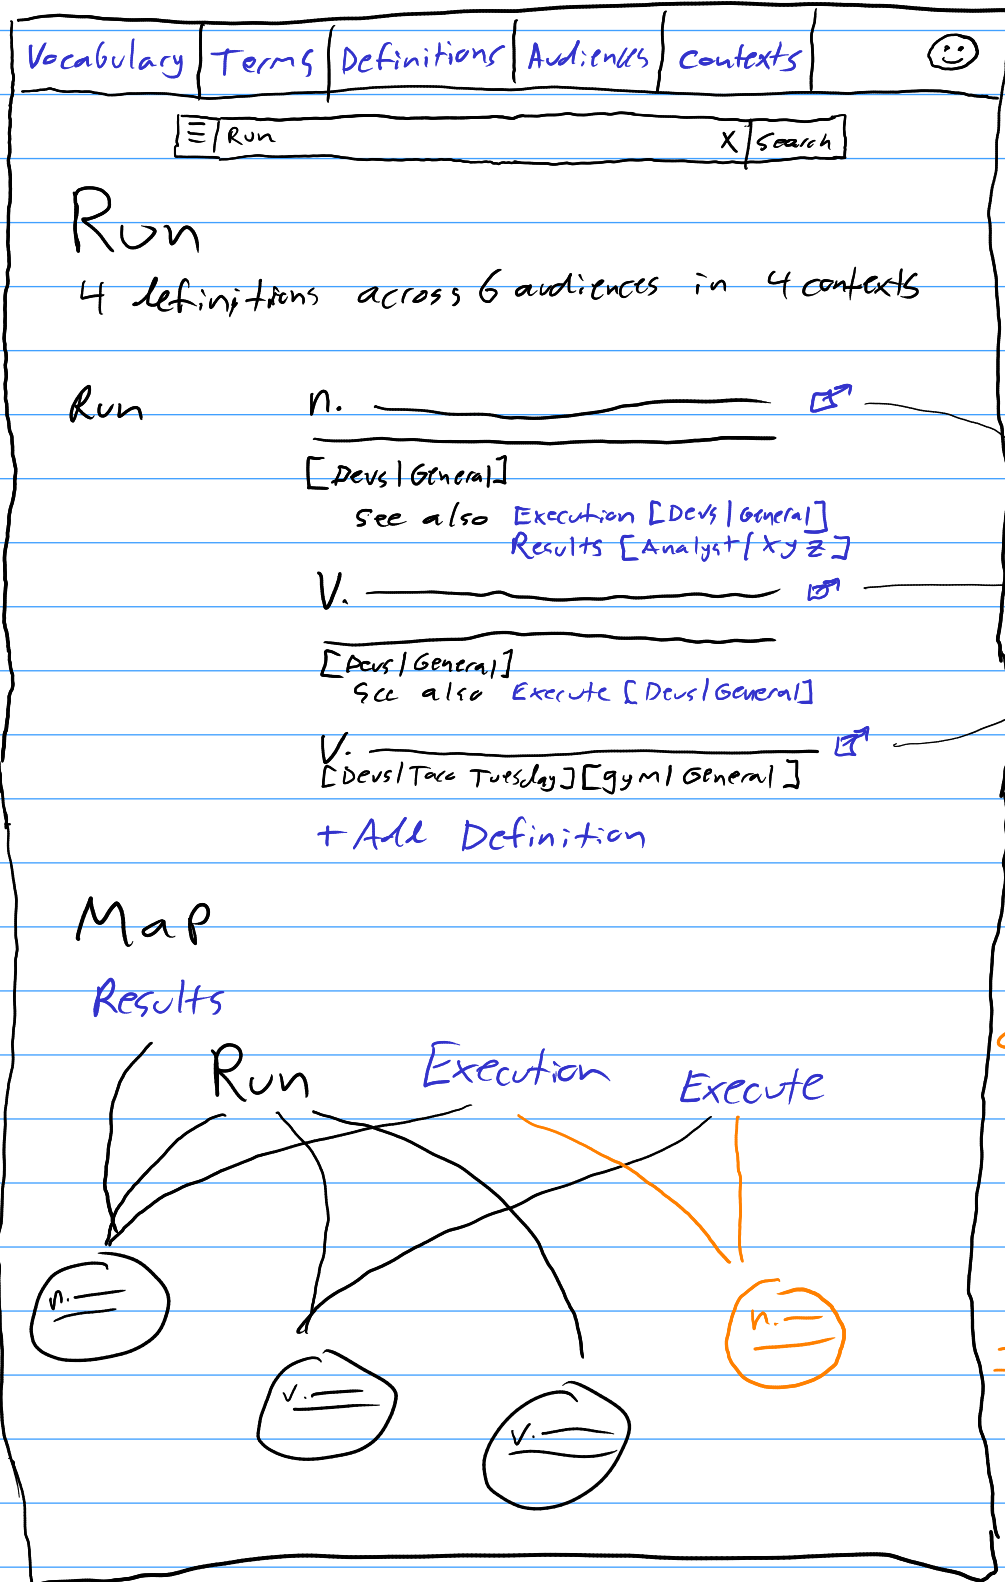 Vocabulary Terms Definitions Audiences Contexts
Run X Search
Run
4 definitions across 6 audiences in 4 contexts
Run n.
[Devs|General]
see also Execution [Devs|General]
Results [Analyst|xyz]
V.
[Devs|General]
see also Execute [Devs|General]
V.
[Devs|Taco Tuesday][gym|General]
+Add Definition
Map
Results
Run Execution Execute
n.
n.
v.
v.